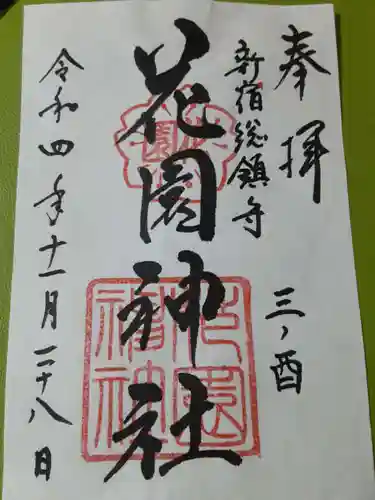 奉拝
三ノ酉
新宿総鎮守
花園神社
令和四年十一月二十八日
花園
花園神社